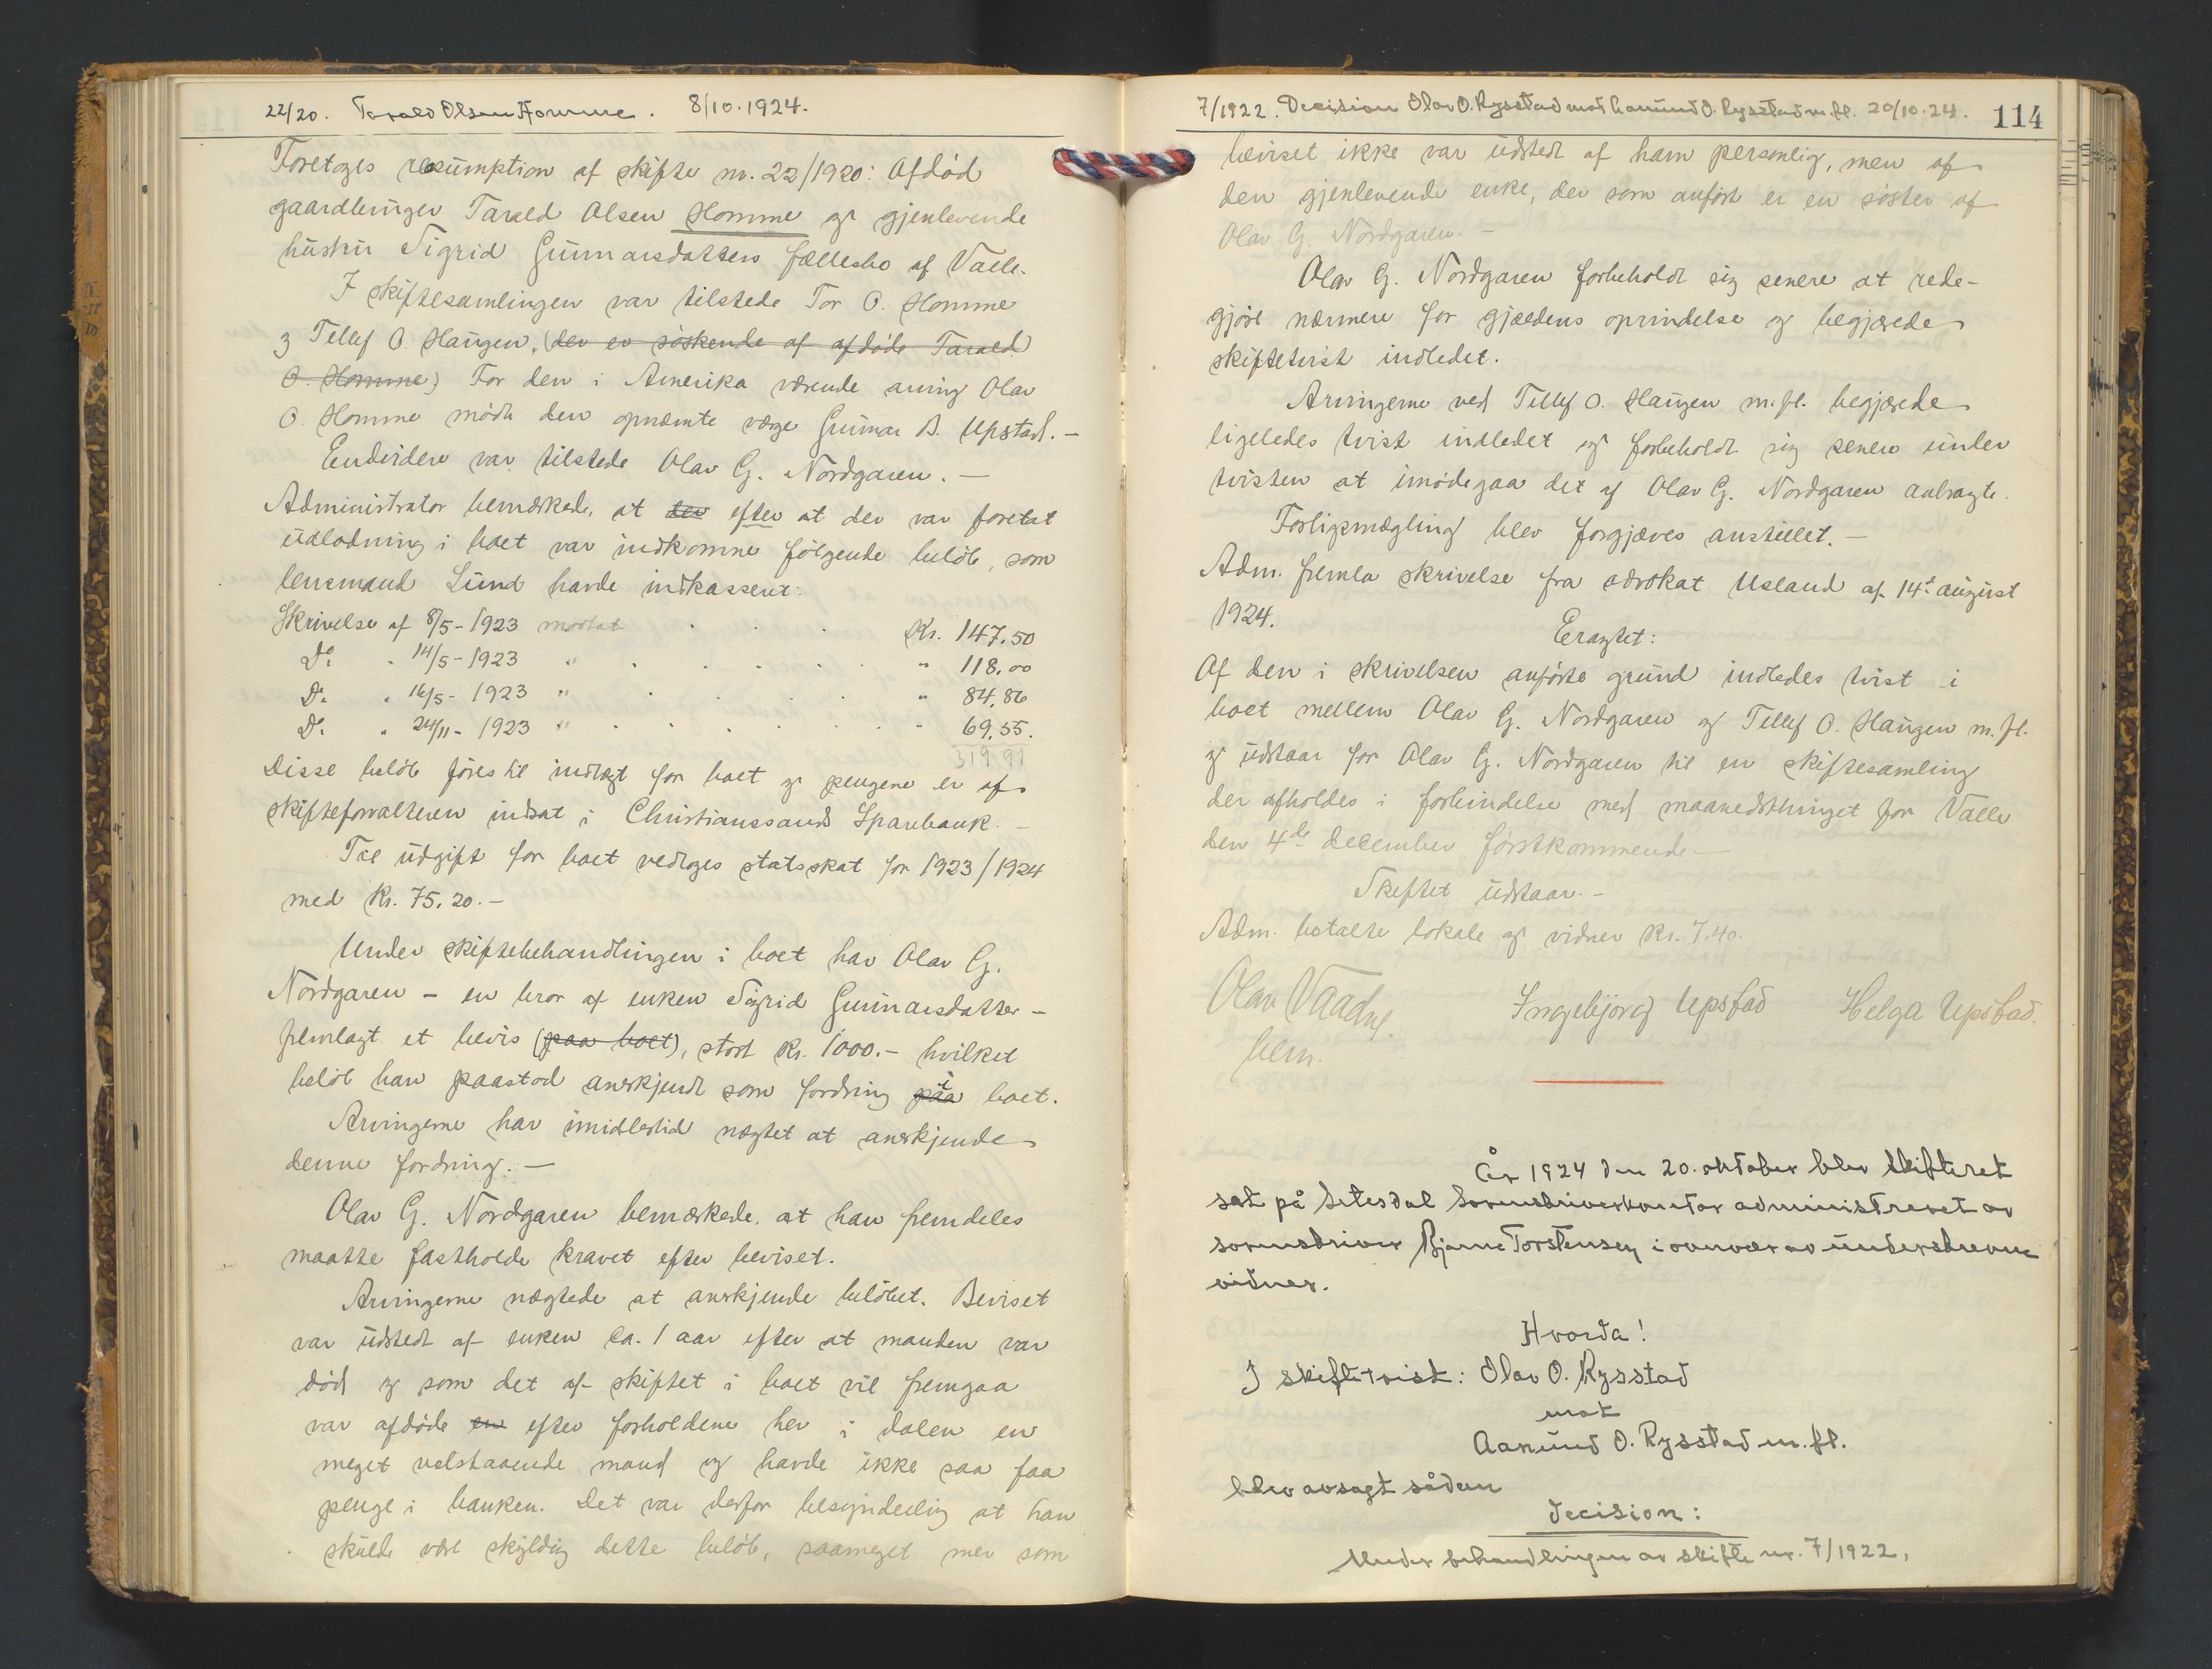 22/20. Tarald Olsen Homme. 8/10.1924.
Foretoges resumption af skifte nr. 22/1920: Afdød
gaardbruger Tarald Olsen Homme og gjenlevende
hustru Sigrid Gunnarsdatters fællesbo af Valle.
I skiftesamlingen var tilstede Tor O. Homme
og Tellef O. Haugen, (der er søskende af afdøde Tarald
O. Homme) For den i Amerika værende arving Olav
O. Homme mødte den opnævnte værge Gunnar B. Upstad. -
Endvidere var tilstede Olav G. Nordgaren. -
Administrator bemærkede, at der efter at der var foretat
udlodning i boet var indkomne følgende beløb, som
lensmand Lund havde indkasseret:
Skrivelse af 8/5 - 1923 mottat . . . Kr. 147.50
Do. " 14/5 - 1923 " . . . . " 118.00
Do. " 16/5 - 1923 " . . . . " 84.86
Do. " 24/11 - 1923 " . . . . " 69.55.
319 91
Disse beløb føres til indtægt for boet og pengene er af
skifteforvalteren indsat i Christianssands Sparebank. -
Til udgift for boet vedtoges statsskat for 1923/1924
med Kr. 75.20. -
Under skiftebehandlingen i boet har Olav G.
Nordgaren - en bror af enken Sigrid Gunnarsdatter -
fremlagt et bevis (paa boet), stort Kr. 1000.- hvilket
beløb han paastod anerkjendt som fordring paa i boet.
Arvingerne har imidlertid nægtet at anerkjende
denne fordring. -
Olav G. Nordgaren bemærkede, at han fremdeles
maatte fastholde kravet efter beviset.
Arvingerne nægtede at anerkjende beløbet. Beviset
var udstedt af enken ca. 1 aar efter at manden var
død og som det af skiftet i boet vil fremgaa
var afdøde en efter forholdene her i dalen en
meget velstaaende mand og havde ikke saa faa
penge i banken. Det var derfor besynderlig at han
skulde være skyldig dette beløb, saameget mer som
7/1922. Decision Olav O. Rysstad mot Aanund O. Rysstad m.fl. 20/10.24. 114
beviset ikke var udstedt af ham personlig, men af
den gjenlevende enke, der som anført er en søster af
Olav G. Nordgaren. -
Olav G. Nordgaren forbeholdt sig senere at rede-
gjøre nærmere for gjældens oprindelse og begjærede
skiftetvist indledet.
Arvingerne ved Tellef O. Haugen m.fl. begjærede
ligeledes tvist indledet og forbeholdt sig senere under
tvisten at imødegaa det af Olav G. Nordgaren anbragte.
Forligsmægling blev forgjæves anstillet. -
Adm. fremla skrivelse fra advokat Usland af 14de august
1924.
Eragtet:
Af den i skrivelsen anførte grund indledes tvist i
boet mellem Olav G. Nordgaren og Tellef O. Haugen m.fl.
og udstaar for Olav G. Nordgaren til en skiftesamling
der afholdes i forbindelse med maanedsthinget for Valle
den 4de december førstkommende -
Skiftet udstaar. -
Adm. betalte lokale og vidner Kr. 7.40.
Olav Vaadne. Ingebjorg Upstad Helga Upstad.
bem.
År 1924 den 20. oktober blev skifteret
sat på Setesdal sorenskriverkontor administreret av
sorenskriver Bjarne Torstensen i overvær av underskrevne
vidner.
Hvorda!
I skiftetvist: Olav O. Rysstad
mot
Aanund O. Rysstad m.fl.
blev avsagt sådan
decision:
Under behandlingen av skifte nr. 7/1922,